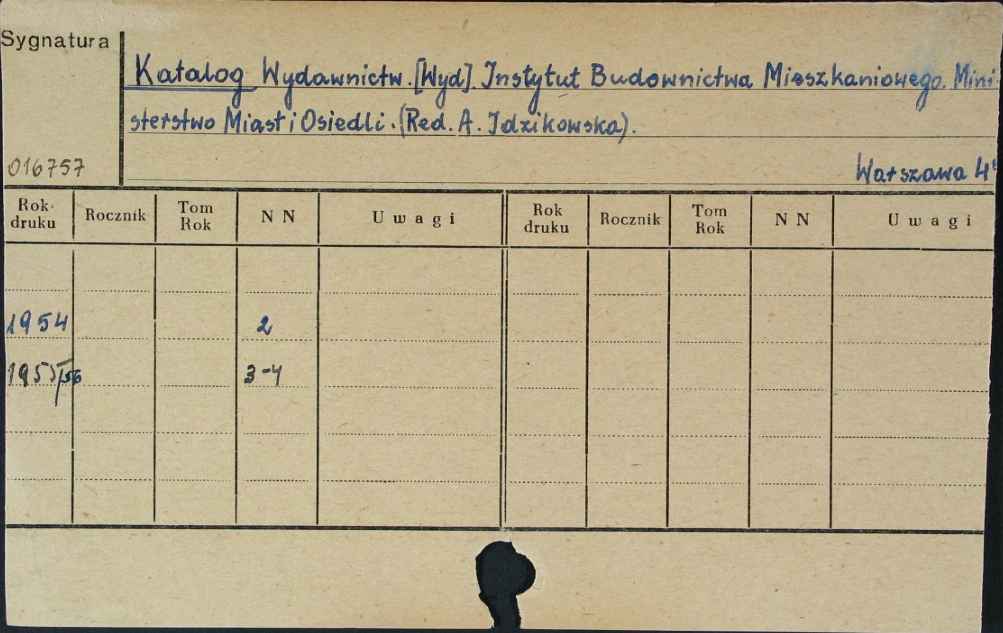 Sygnatura
Katalog Wydawnictw. [Wyd]. Instytut Budownictwa Mieszkaniowego. Mini
sterstwo Miast i Osiedli. (Red. A. Idzikowska).
016757
Warszawa 4°
Rok druku Rocznik Tom Rok NN Uwagi Rok druku Rocznik Tom Rok NN Uwagi
1954 2
1955/56 3-4